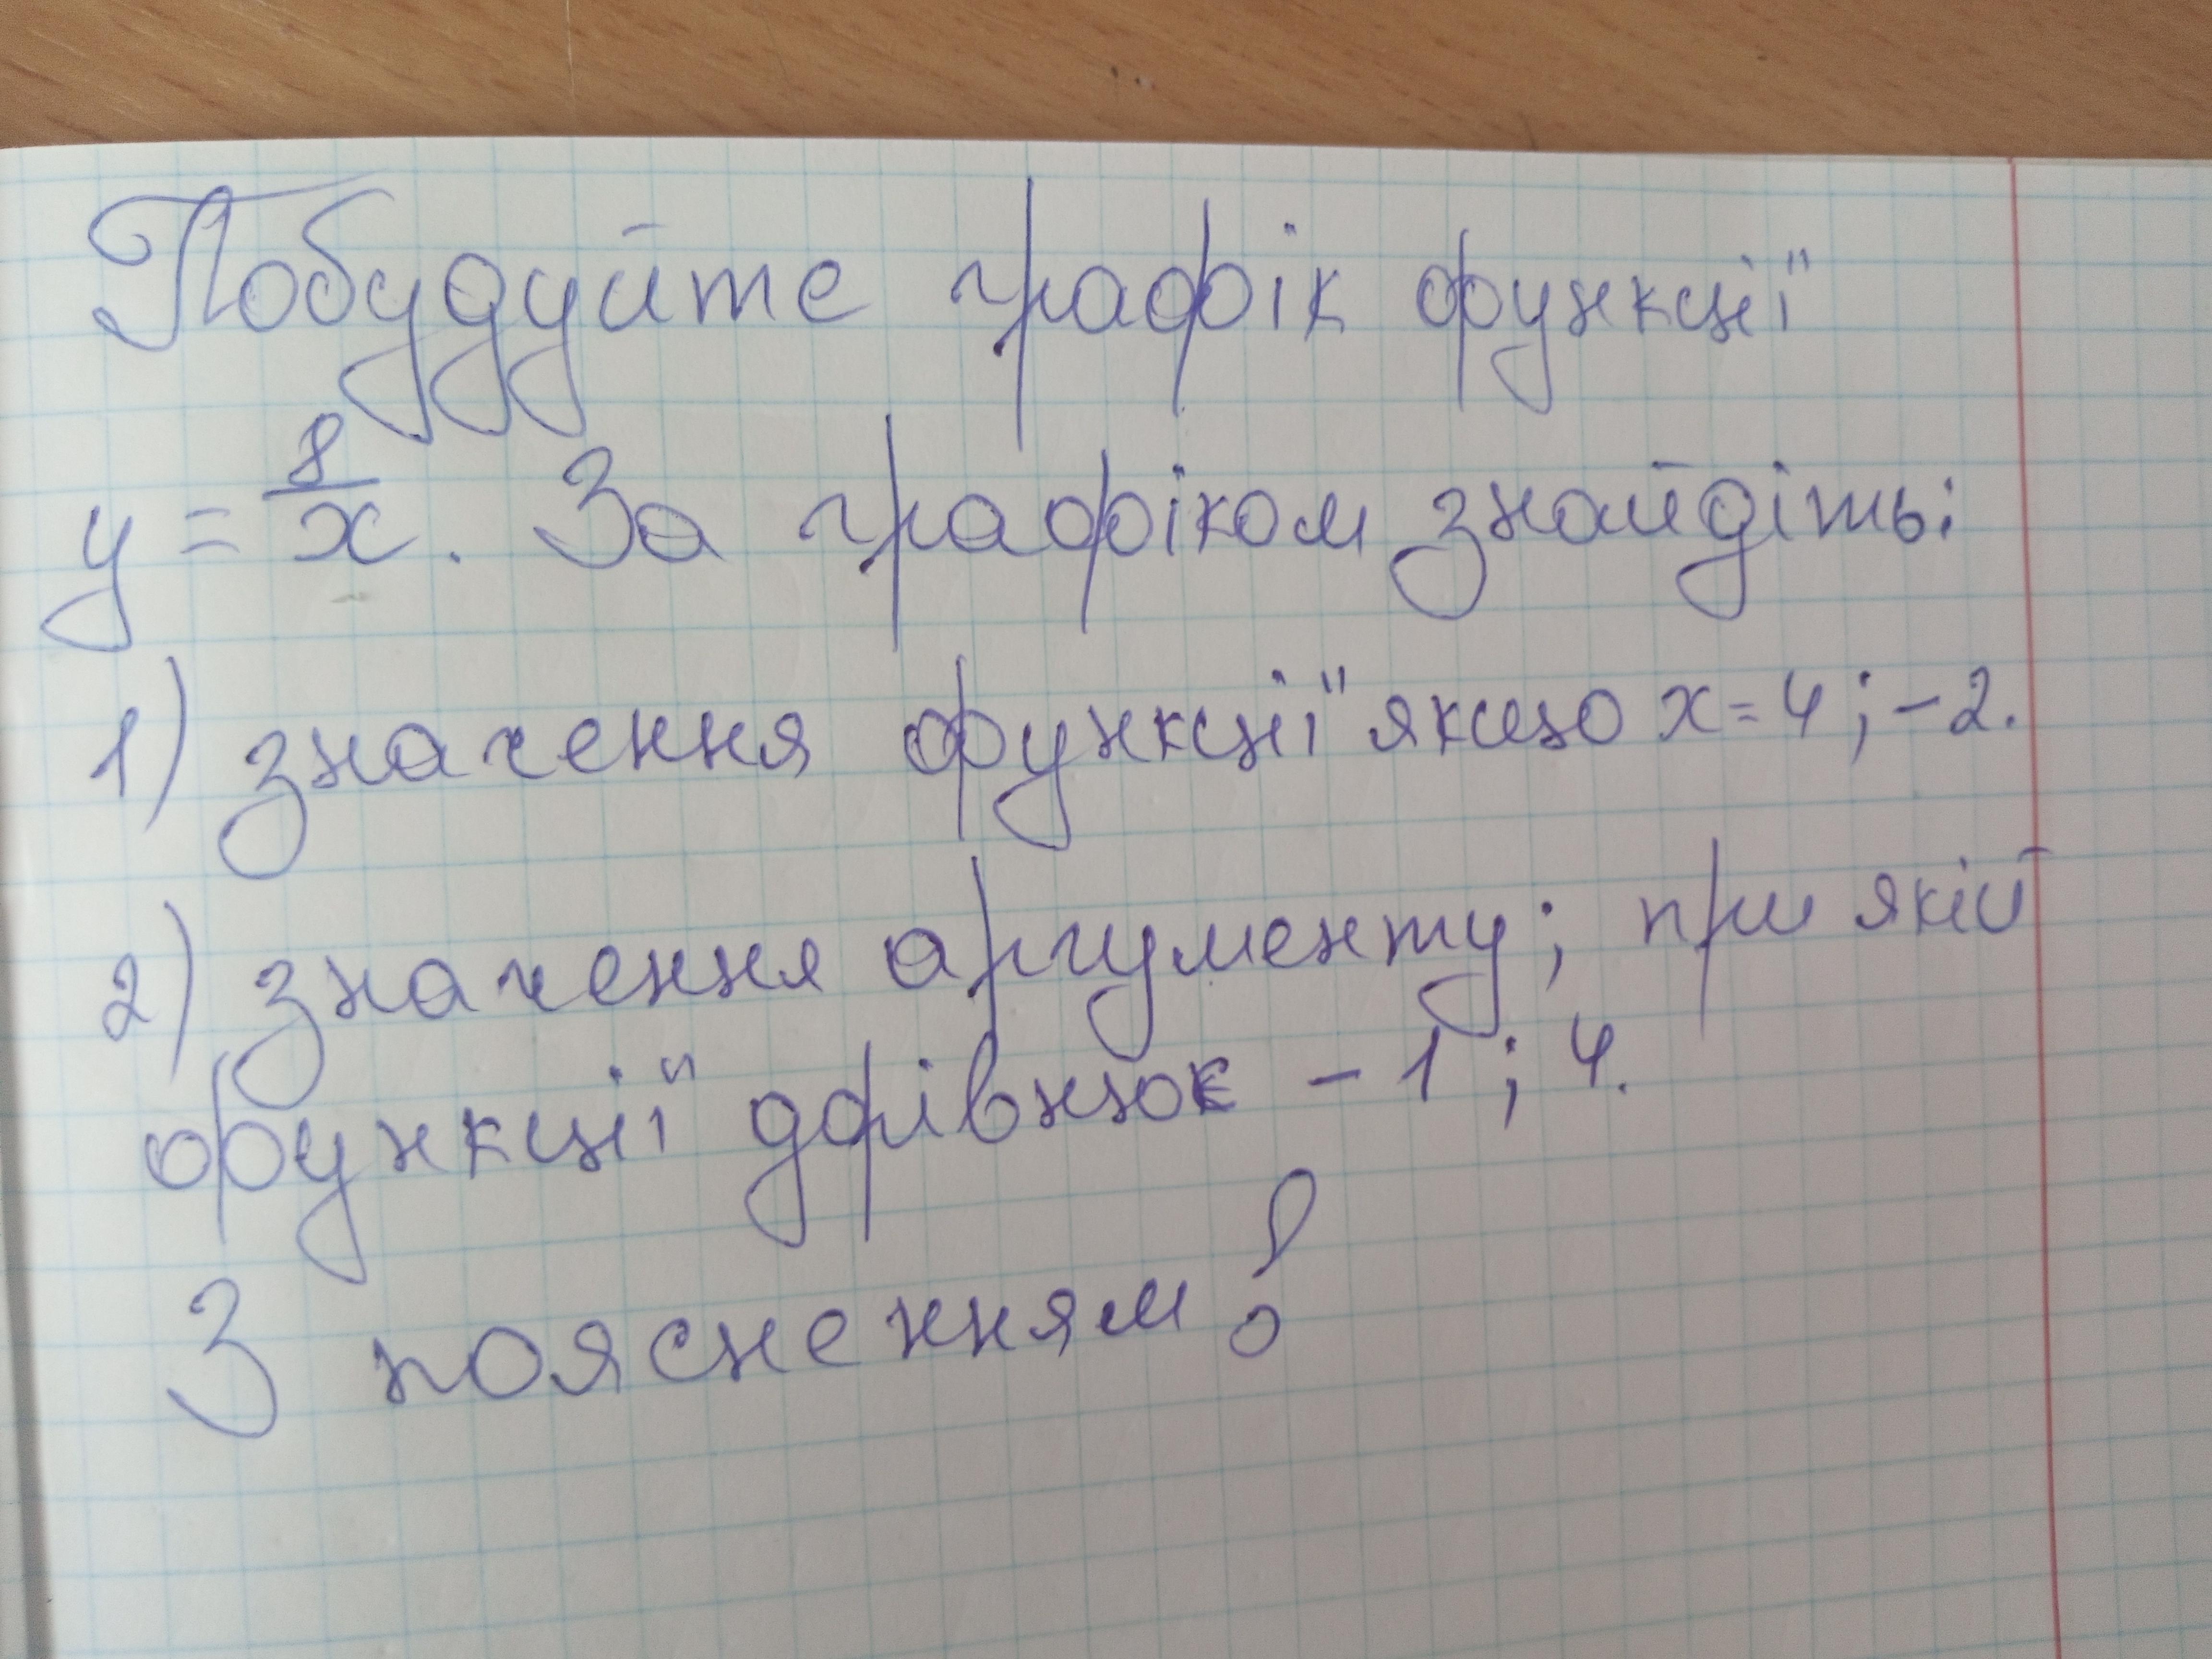 Побудуйте графік функції
y = 8/x. За графіком знайдіть:
1) значення функції якщо x=4;-2.
2) значення аргументу; при якій
функції дорівнює -1; 4.
З поясненням!